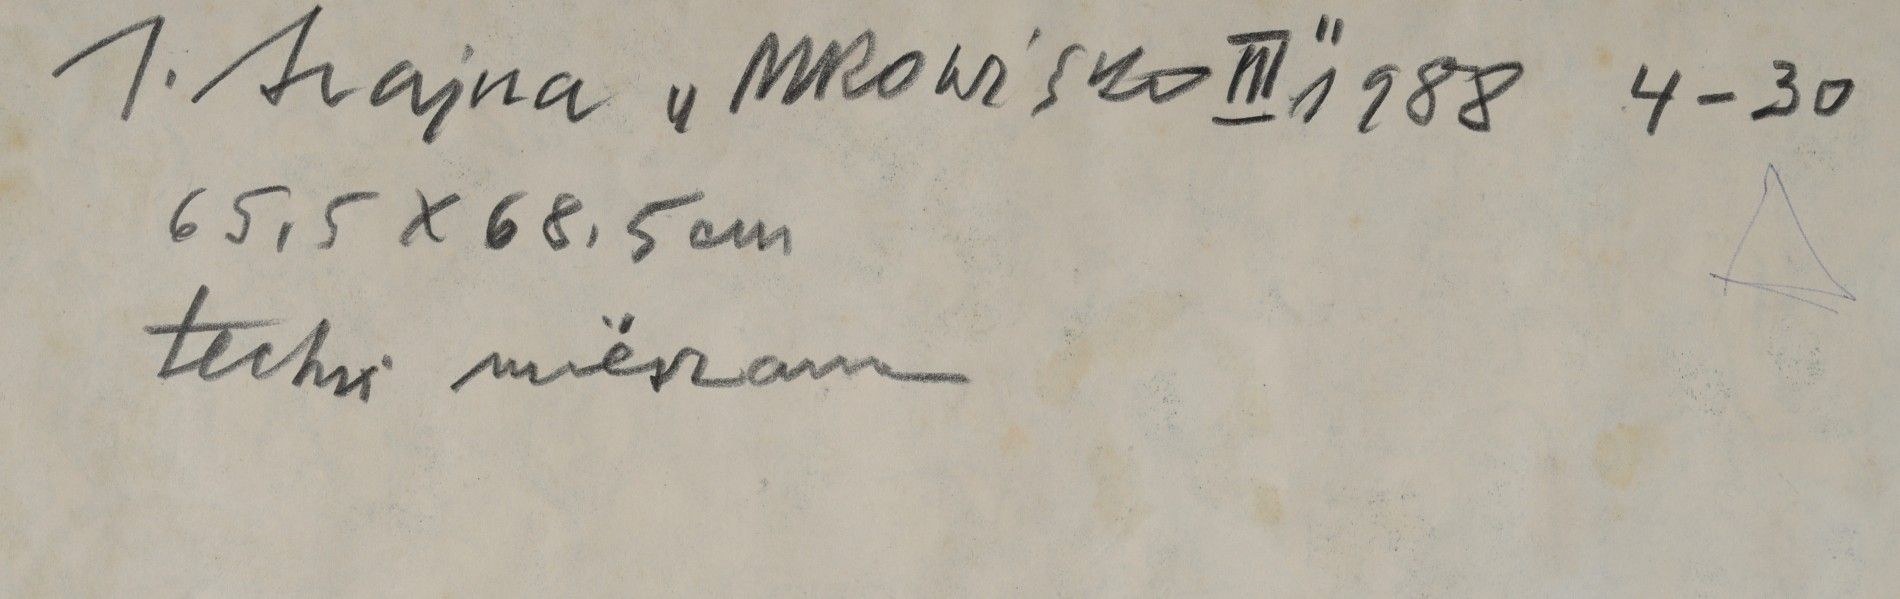 J. Szajna „MROWISKO III" 1988 4-30
65,5 x 68,5 cm
techn mieszana